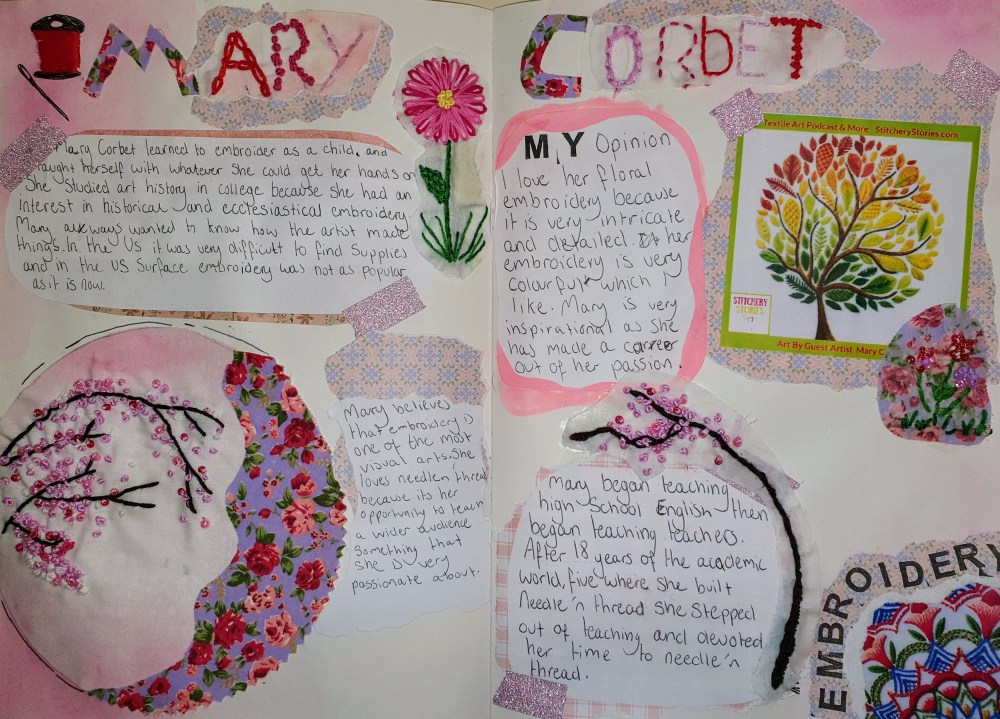 MARY CORBET
Mary Corbet learned to embroider as a child, and
taught herself with whatever she could get her hands on
She studied art history in college because she had an
interest in historical and ecclesiastical embroidery
Mary always wanted to know how the artist made
things. In the US it was very difficult to find supplies
and in the US Surface embroidery was not as popular
as it is now.
Mary believes
that embroidery is
one of the most
visual arts. She
loves needlen thread
because its her
opportunity to teach
a wider audience
something that
she is very
passionate about.
MY Opinion
I love her floral
embroidery because
it is very intricate
and detailed. her
embroidery is very
colourful which I
like. Mary is very
inspirational as she
has made a career
out of her passion.
Textile Art Podcast & More StitcheryStories.com
STITCHERY
STORIES
Art By Guest Artist Mary C
Mary began teaching
high School English then
began teaching teachers.
After 18 years of the academic
world, five where she built
Needle'n thread she stepped
out of teaching and devoted
her time to needle'n
thread.
EMBROIDERY